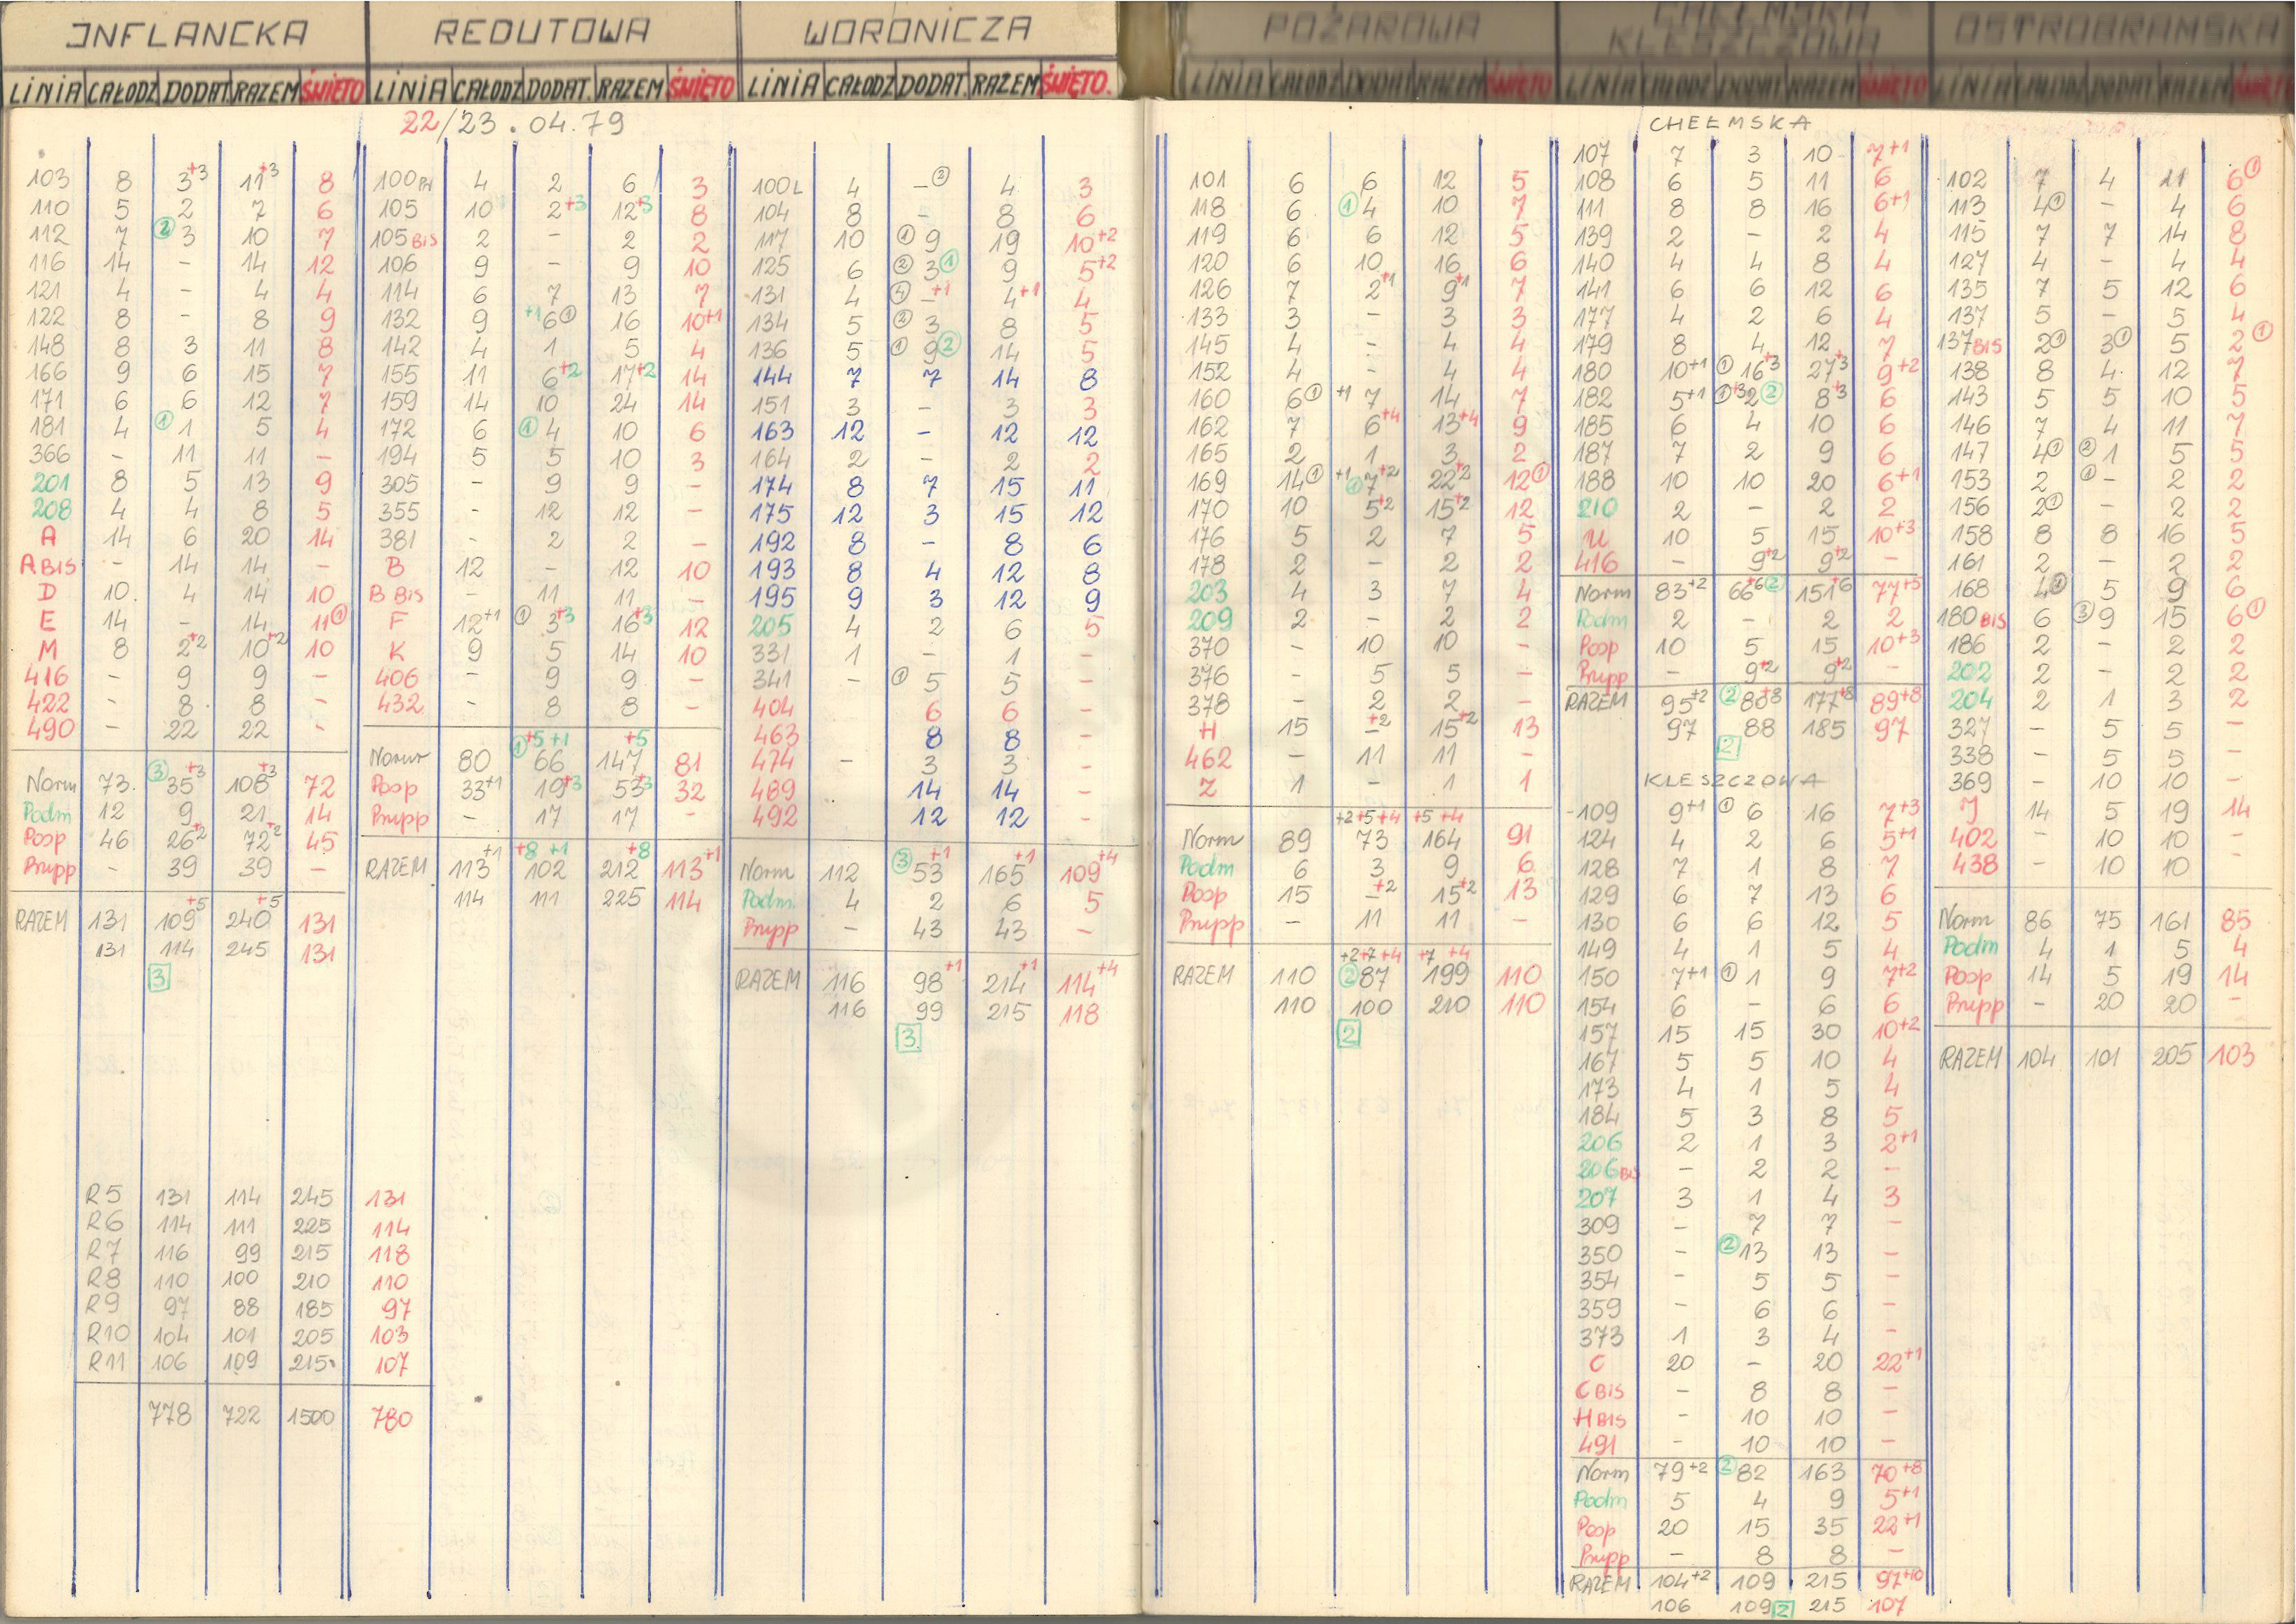 INFLANCKA
LINIA CAŁODZ DODAT RAZEM ŚWIĘTO
22/23.04.79
103 8 3+3 11+3 8
110 5 2 7 6
112 7 ② 3 10 7
116 14 - 14 12
121 4 - 4 4
122 8 - 8 9
148 8 3 11 8
166 9 6 15 7
171 6 6 12 7
181 4 ① 1 5 4
366 - 11 11 -
201 8 5 13 9
208 4 4 8 5
A 14 6 20 14
A BIS - 14 14 -
D 10. 4 14 10
E 14 - 14 11①
M 8 2+2 10+2 10
416 - 9 9 -
422 - 8 8 -
490 - 22 22 -
Norm 73. ③ 35+3 108+3 72
Podm 12 9 21 14
Posp 46 26+2 72+2 45
Pnipp - 39 39 -
RAZEM 131 109+5 240+5 131
131 114 245 131
3
R5 131 114 245 131
R6 114 111 225 114
R7 116 99 215 118
R8 110 100 210 110
R9 97 88 185 97
R10 104 101 205 103
R11 106 109 215 107
778 722 1500 780
REDUTOWA
LINIA CAŁODZ DODAT. RAZEM ŚWIĘTO
100PH 4 2 6 3
105 10 2+3 12+3 8
105 BIS 2 - 2 2
106 9 - 9 10
114 6 7 13 7
132 9 +1 6① 16 10+1
142 4 1 5 4
155 11 6+2 17+2 14
159 14 10 24 14
172 6 ① 4 10 6
194 5 5 10 3
305 - 9 9 -
355 - 12 12 -
381 - 2 2 -
B 12 - 12 10
B BIS - 11 11 -
F 12+1 ① 3+3 16+3 12
K 9 5 14 10
406 - 9 9 -
432 - 8 8 -
Norm 80 ① +5 +1 66 147+5 81
Posp 33+1 19+3 53+3 32
Pnipp - 17 17 -
RAZEM 113+1 +8 +1 102 212+8 113+1
114 111 225 114
WORONICZA
LINIA CAŁODZ DODAT. RAZEM ŚWIĘTO.
100L 4 -② 4 3
104 8 - 8 6
117 10 ① 9 19 10+2
125 6 ② 3① 9 5+2
131 4 ④ -+1 4+1 4
134 5 ② 3 8 5
136 5 ① 9② 14 5
144 7 7 14 8
151 3 - 3 3
163 12 - 12 12
164 2 - 2 2
174 8 7 15 11
175 12 3 15 12
192 8 - 8 6
193 8 4 12 8
195 9 3 12 9
205 4 2 6 5
331 1 - 1 -
341 - ① 5 5 -
404 6 6 -
463 8 8 -
474 - 3 3 -
489 14 14 -
492 12 12 -
Norm 112 ③ 53+1 165+1 109+4
Podm. 4 2 6 5
Pnipp - 43 43 -
RAZEM 116 98+1 214+1 114+4
116 99 215 118
3
POŻAROWA
LINIA CAŁODZ DODAT RAZEM ŚWIĘTO
101 6 6 12 5
118 6 ① 4 10 7
119 6 6 12 5
120 6 10 16 6
126 7 2+1 9+1 7
133 3 - 3 3
145 4 - 4 4
152 4 - 4 4
160 6① +1 7 14 7
162 7 6+4 13+4 9
165 2 1 3 2
169 14① +1 ① 7+2 22+2 12①
170 10 5+2 15+2 12
176 5 2 7 5
178 2 - 2 2
203 4 3 7 4
209 2 - 2 2
370 - 10 10 -
376 - 5 5 -
378 - 2 2 -
H 15 -+2 15+2 13
462 - 11 11 -
Z 1 - 1 1
+2+5+4 +5+4
Norm 89 73 164 91
Podm 6 3 9 6
Posp 15 -+2 15+2 13
Pnipp - 11 11 -
+2+7+4 +7 +4
RAZEM 110 ② 87 199 110
110 100 210 110
2
CHEŁMSKA
KLESZCZOWA
LINIA CAŁODZ DODAT RAZEM ŚWIĘTO
CHEŁMSKA
107 7 3 10 7+1
108 6 5 11 6
111 8 8 16 6+1
139 2 - 2 4
140 4 4 8 4
141 6 6 12 6
177 4 2 6 4
179 8 4 12 7
180 10+1 ① 16+3 27+3 9+2
182 5+1 ①+3 2② 8+3 6
185 6 4 10 6
187 7 2 9 6
188 10 10 20 6+1
210 2 - 2 2
U 10 5 15 10+3
416 - 9+2 9+2 -
Norm 83+2 66+6② 151+6 77+5
Podm 2 - 2 2
Posp 10 5 15 10+3
Pnipp - 9+2 9+2 -
RAZEM 95+2 ② 88+8 177+8 89+8
97 88 185 97
2
KLESZCZOWA
109 9+1 ① 6 16 7+3
124 4 2 6 5+1
128 7 1 8 7
129 6 7 13 6
130 6 6 12 5
149 4 1 5 4
150 7+1 ① 1 9 7+2
154 6 - 6 6
157 15 15 30 10+2
167 5 5 10 4
173 4 1 5 4
184 5 3 8 5
206 2 1 3 2+1
206 BIS - 2 2 -
207 3 1 4 3
309 - 7 7 -
350 - ② 13 13 -
354 - 5 5 -
359 - 6 6 -
373 1 3 4 -
C 20 - 20 22+1
C BIS - 8 8 -
H BIS - 10 10 -
491 - 10 10 -
Norm 79+2 ② 82 163 70+8
Podm 5 4 9 5+1
Posp 20 15 35 22+1
Pnipp - 8 8 -
RAZEM 104+2 109 215 97+10
106 109 2 215 107
OSTROBRAMSKA
LINIA CAŁODZ DODAT RAZEM ŚWIĘTO
102 7 4 11 6①
113 4① - 4 6
115 7 7 14 8
127 4 - 4 4
135 7 5 12 6
137 5 - 5 4
137 BIS 2① 3① 5 2①
138 8 4. 12 7
143 5 5 10 5
146 7 4 11 7
147 4① ② 1 5 5
153 2 ① - 2 2
156 2① - 2 2
158 8 8 16 5
161 2 - 2 2
168 4 5 9 6
180 BIS 6 ③ 9 15 6①
186 2 - 2 2
202 2 - 2 2
204 2 1 3 2
327 - 5 5 -
338 - 5 5 -
369 - 10 10 -
J 14 5 19 14
402 - 10 10 -
438 - 10 10 -
Norm 86 75 161 85
Podm 4 1 5 4
Posp 14 5 19 14
Pnipp - 20 20 -
RAZEM 104 101 205 103